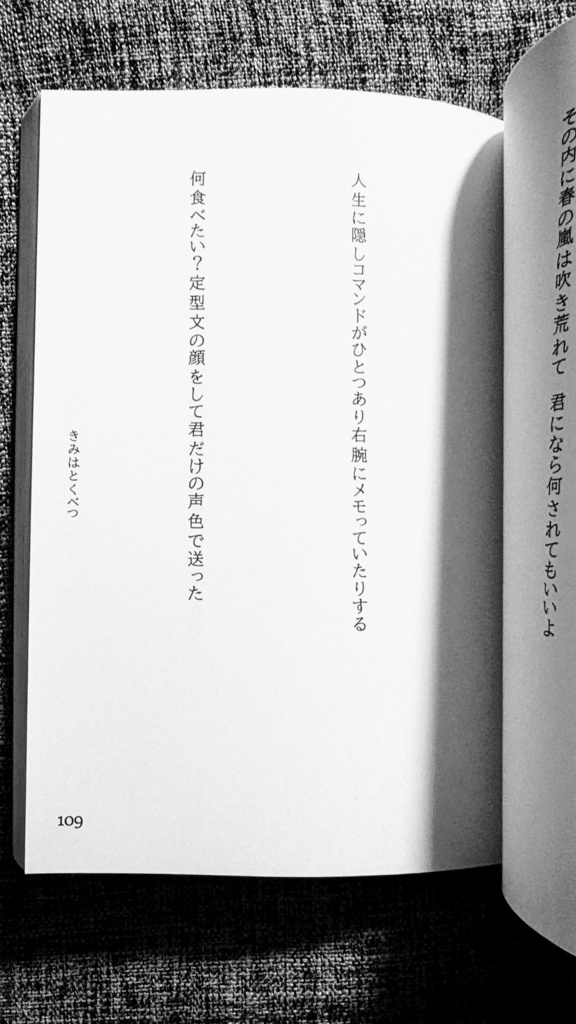 その内に春の嵐は吹き荒れて　君になら何されてもいいよ
人生に隠しコマンドがひとつあり右腕にメモっていたりする
何食べたい？定型文の顔をして君だけの声色で送った
きみはとくべつ
109